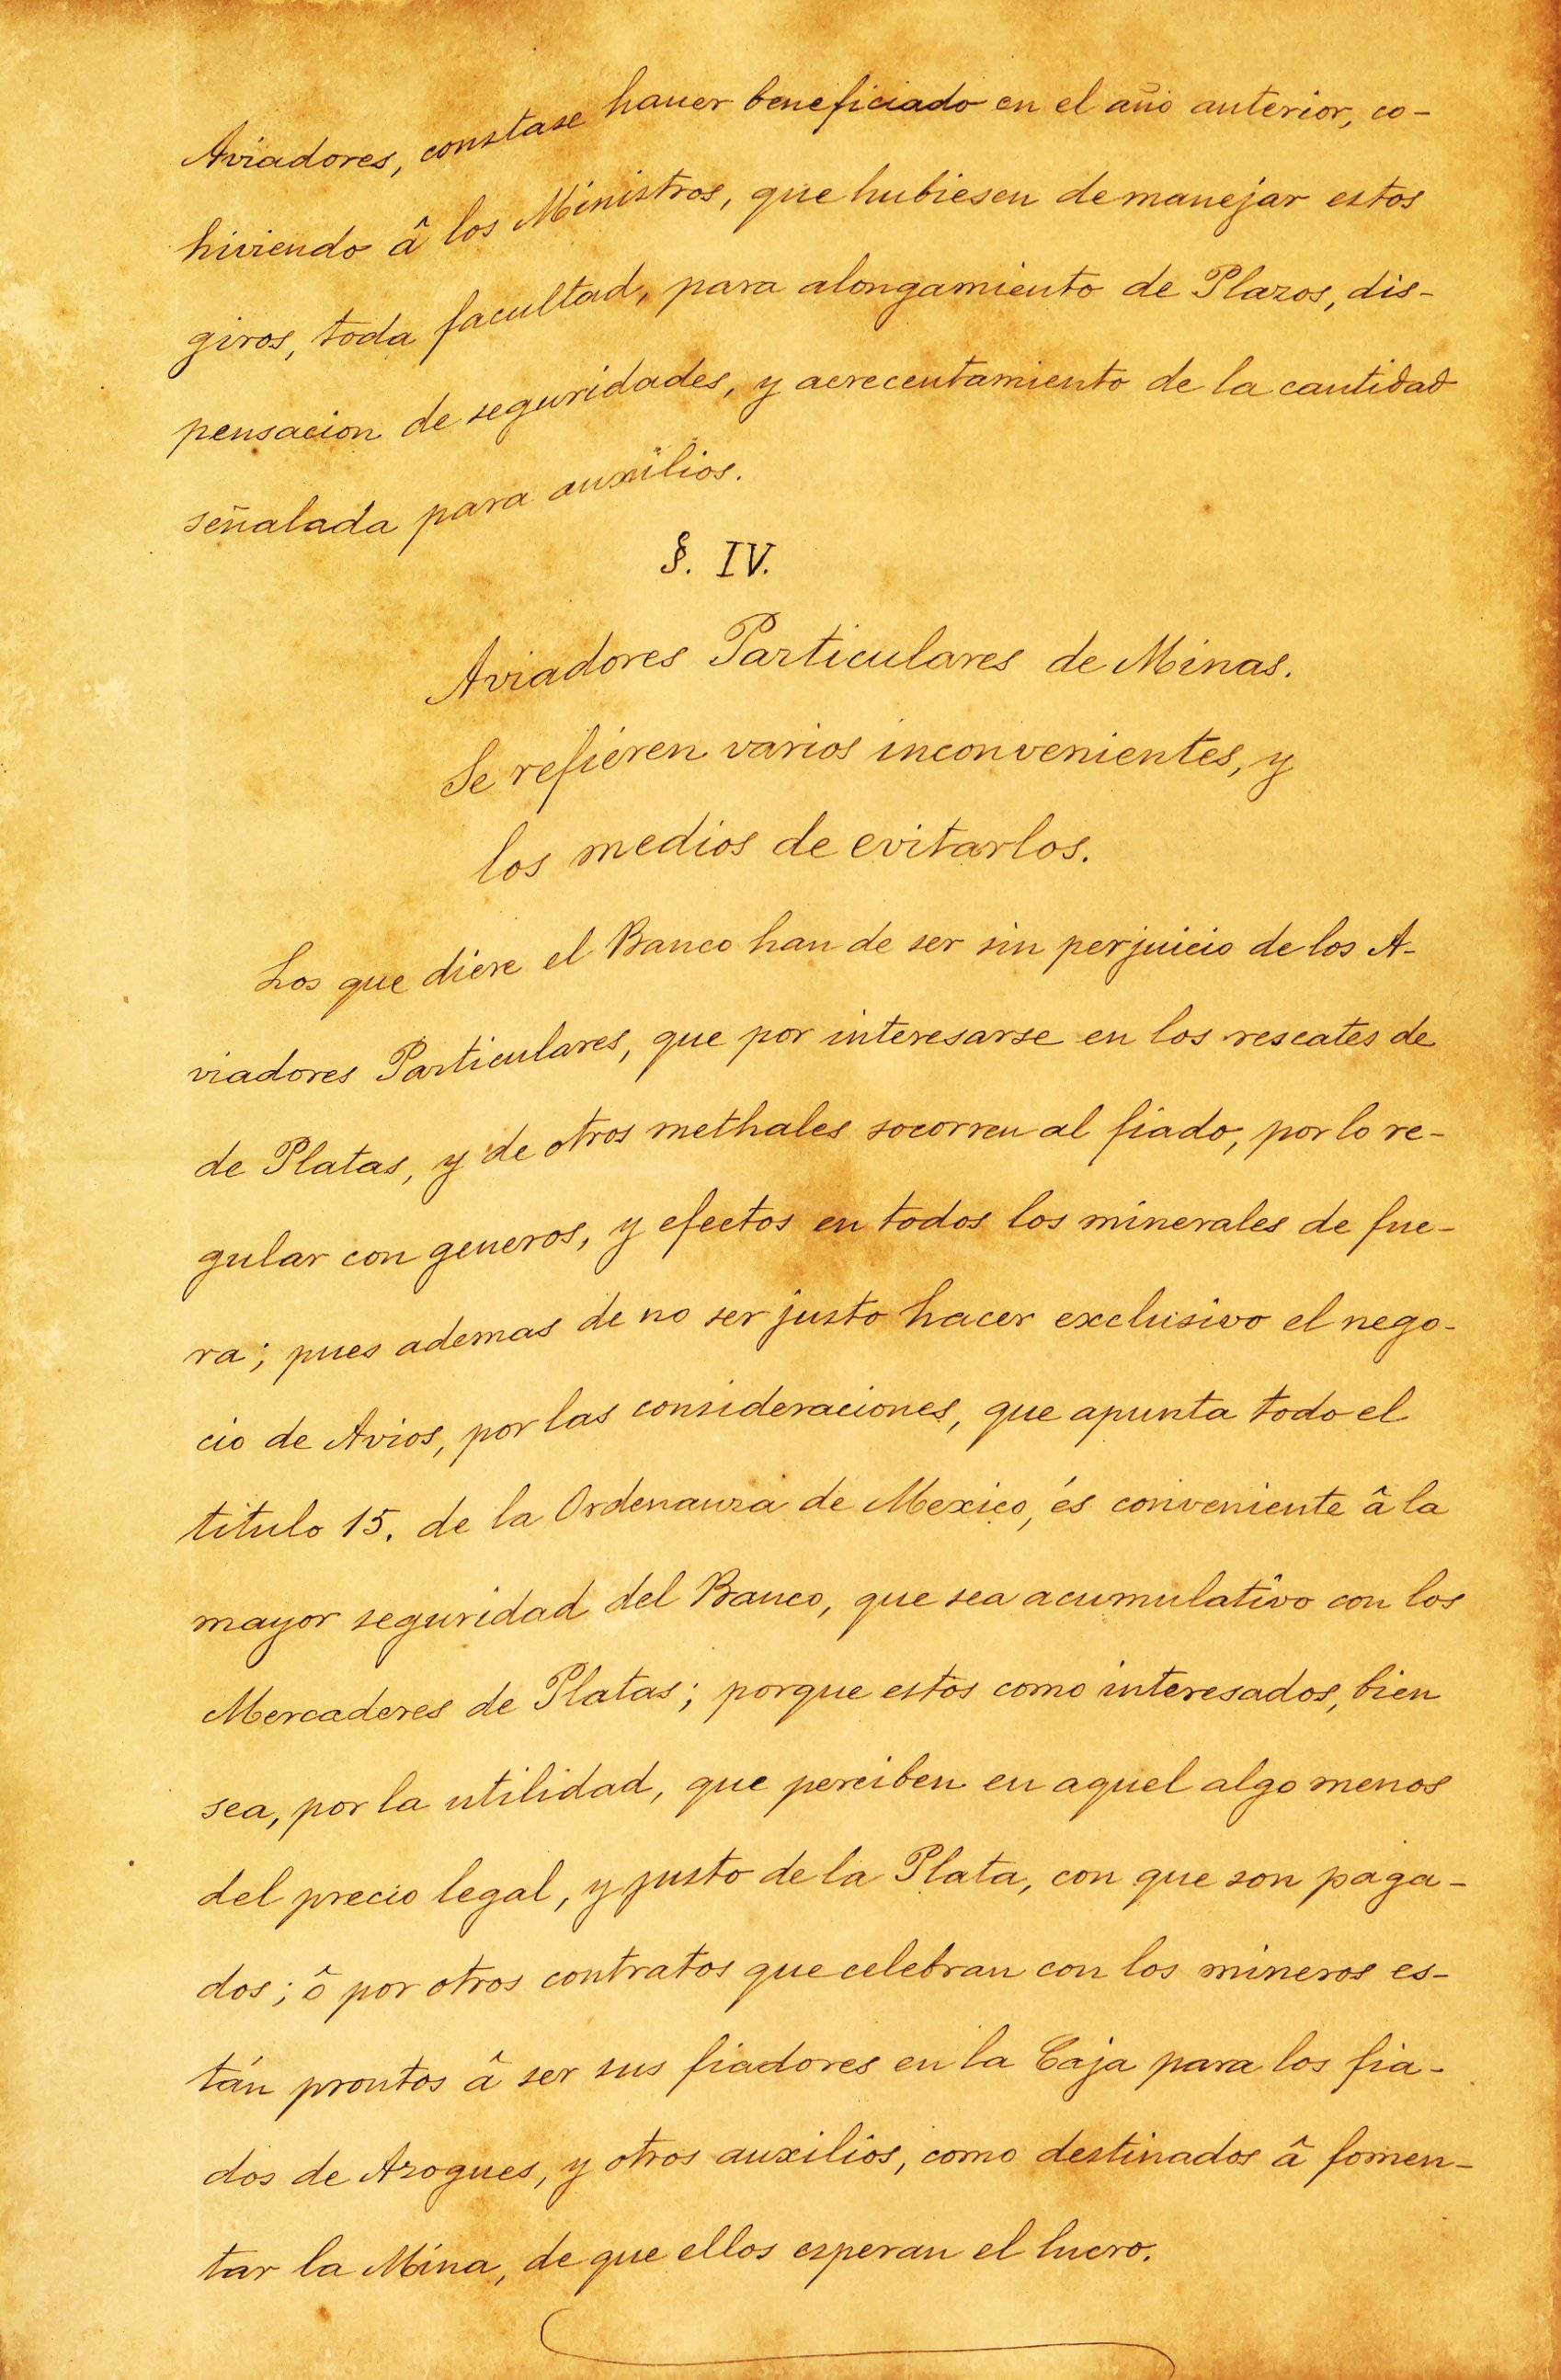 Aviadores, constase hauer beneficiado en el año anterior, co-
hiviendo â los Ministros, que hubiesen de manejar estos
giros, toda facultad, para alongamiento de Plazos, dis-
pensacion de seguridades, y acrecentamiento de la cantidad
señalada para auxilios.
§. IV.
Aviadores Particulares de Minas.
Se refieren varios inconvenientes, y
los medios de evitarlos.
Los que diere el Banco han de ser sin perjuicio de los A-
viadores Particulares, que por interesarse en los rescates de
de Platas, y de otros methales socorren al fiado, por lo re-
gular con generos, y efectos en todos los minerales de fue-
ra; pues ademas de no ser justo hacer exclusivo el nego-
cio de Avios, por las consideraciones, que apunta todo el
titulo 15. de la Ordenanza de Mexico, és conveniente â la
mayor seguridad del Banco, que sea acumulativo con los
Mercaderes de Platas; porque estos como interesados, bien
sea, por la utilidad, que perciben en aquel algo menos
del precio legal, y justo de la Plata, con que son paga-
dos; ô por otros contratos que celebran con los mineros es-
tán prontos â ser sus fiadores en la Caja para los fia-
dos de Azogues, y otros auxilios, como destinados â fomen-
tar la Mina, de que ellos esperan el lucro.